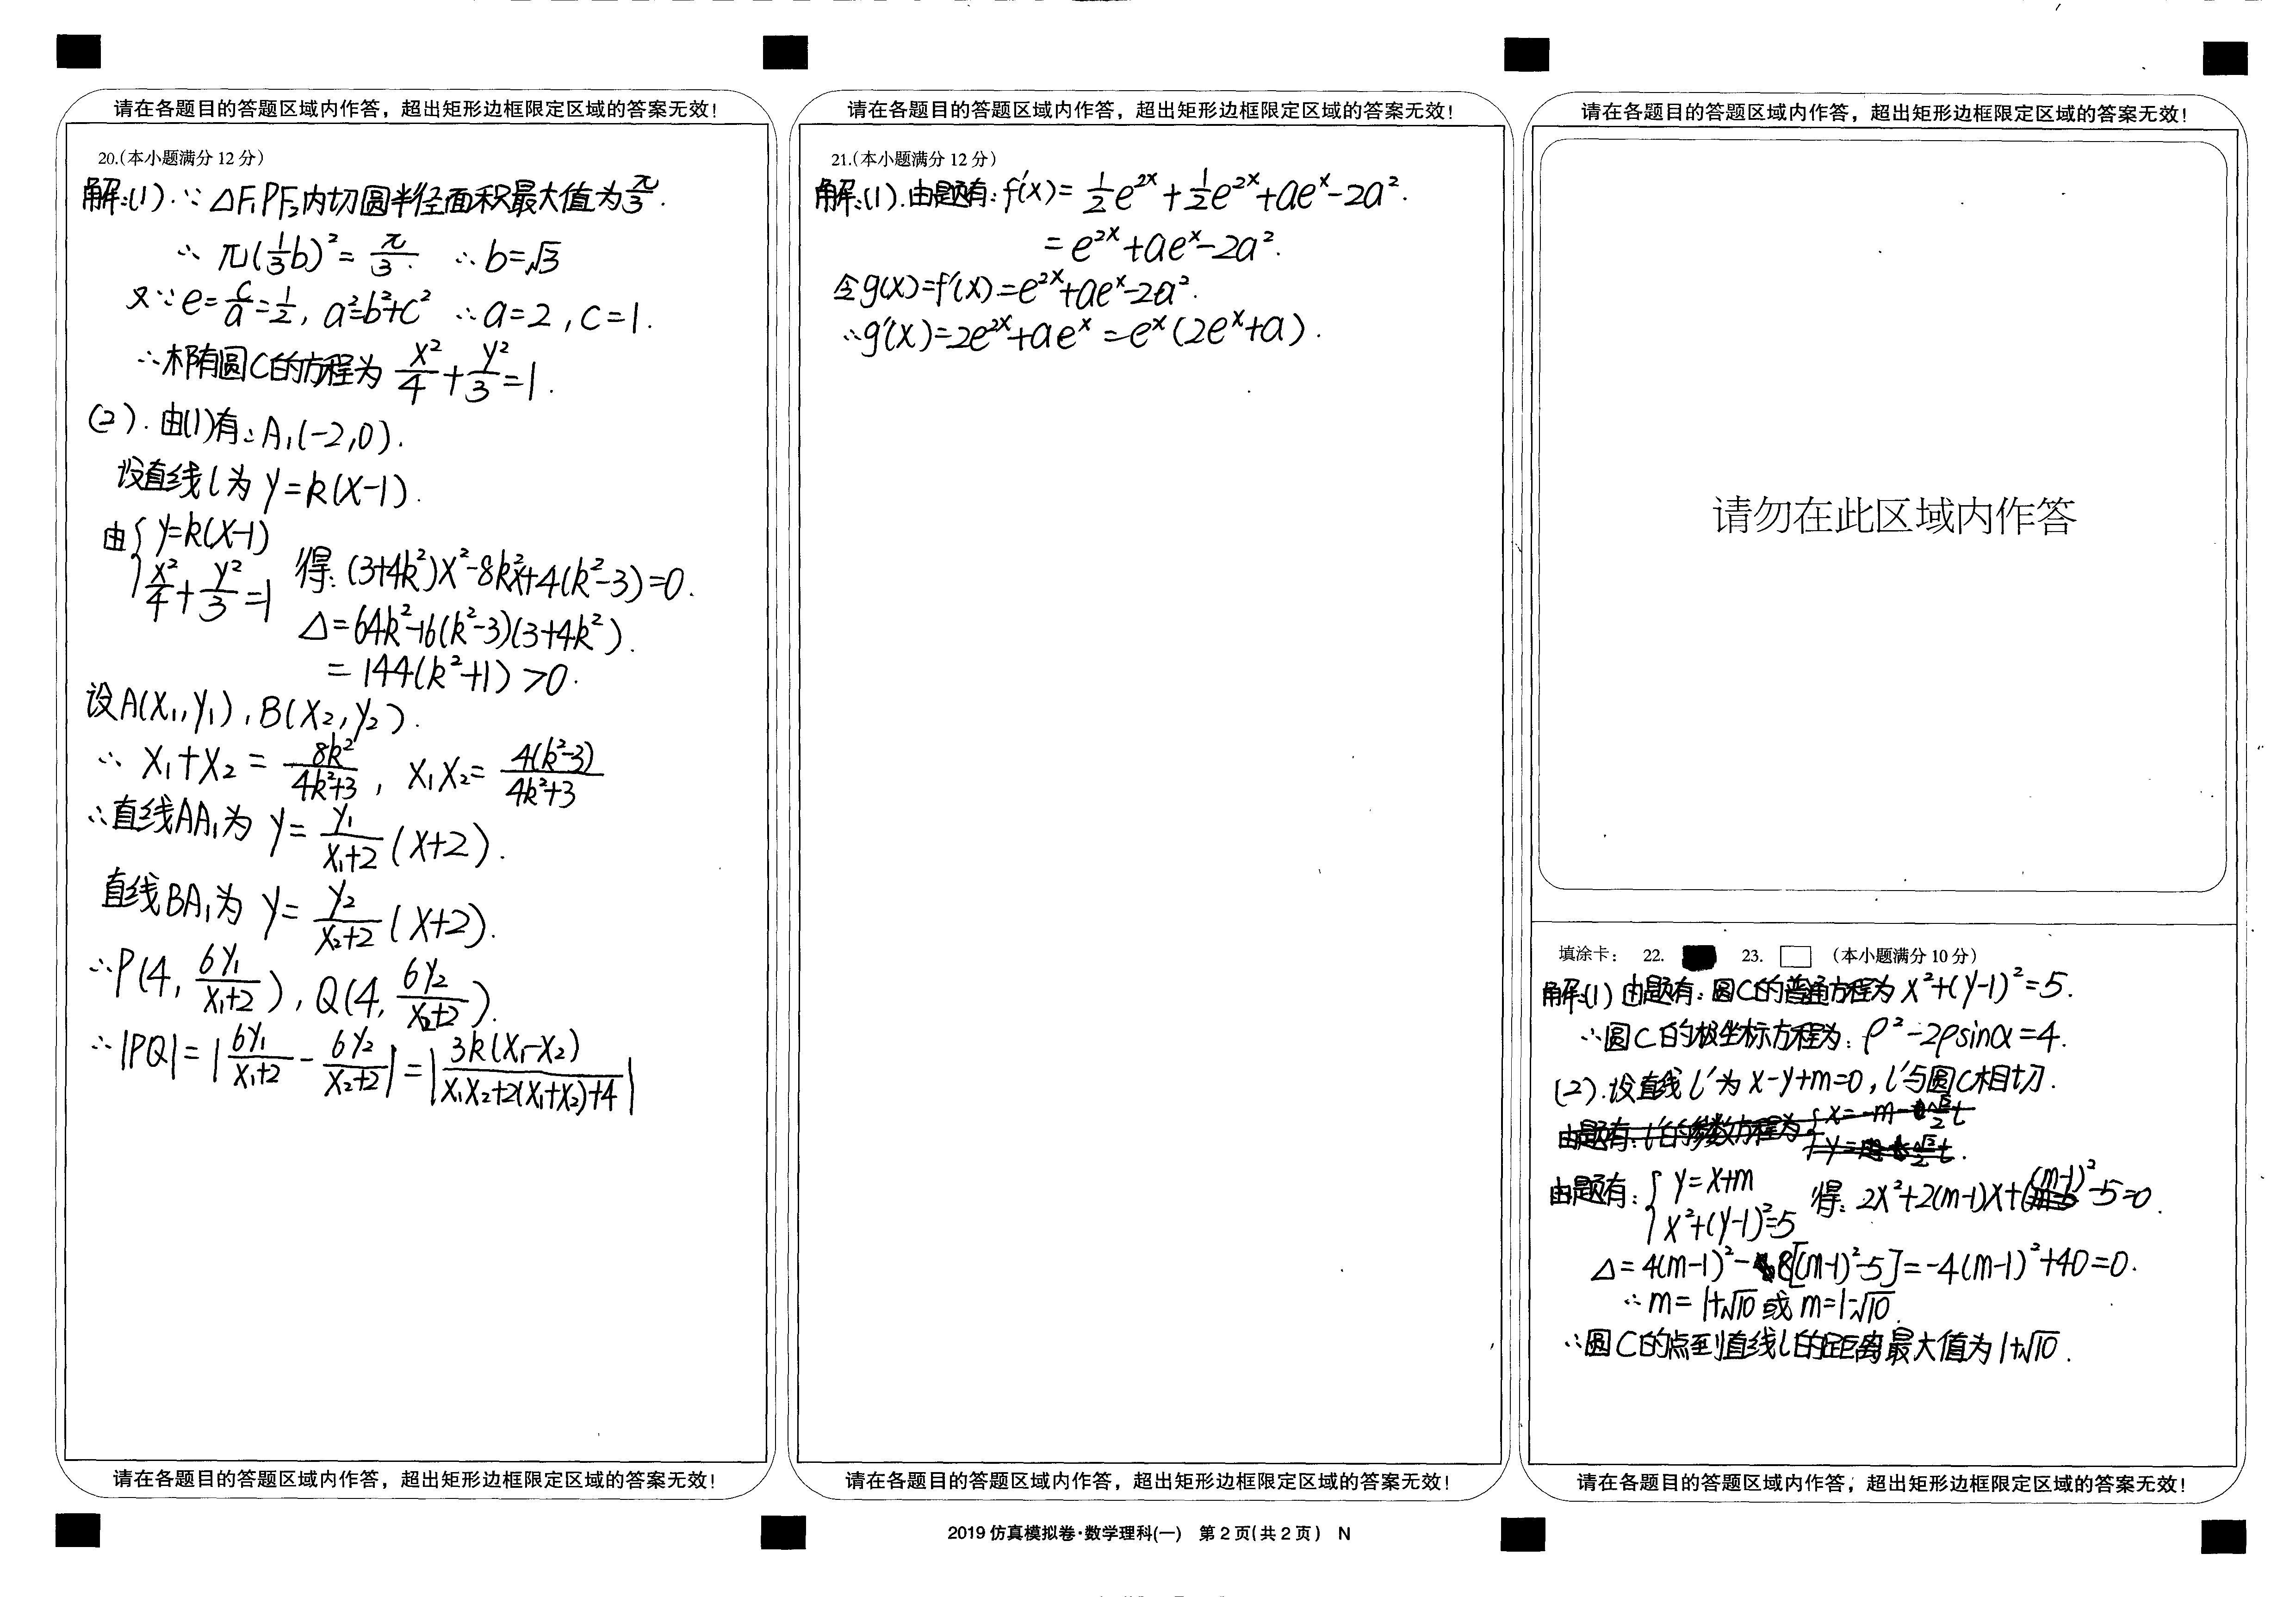 请在各题目的答题区域内作答，超出矩形边框限定区域的答案无效！
20.(本小题满分 12 分)
解:(1).∵ △F₁PF₂内切圆半径面积最大值为π/3.
∴ π(1/3 b)²=π/3. ∴b=√3
又∵e=c/a=1/2, a²=b²+c² ∴a=2, c=1.
∴椭圆C的方程为 x²/4+y²/3=1.
(2). 由(1)有: A₁(-2,0).
设直线l为 y=k(x-1).
由{y=k(x-1)
x²/4+y²/3=1 得: (3+4k²)x²-8k²x+4(k²-3)=0.
Δ=64k²-16(k²-3)(3+4k²).
=144(k²+1)>0.
设A(x₁,y₁), B(x₂,y₂).
∴ x₁+x₂=8k²/(4k²+3), x₁x₂=4(k²-3)/(4k²+3)
∴直线AA₁为 y=y₁/(x₁+2) (x+2).
直线BA₁为 y=y₂/(x₂+2) (x+2).
∴P(4, 6y₁/(x₁+2)), Q(4, 6y₂/(x₂+2)).
∴|PQ|=|6y₁/(x₁+2)-6y₂/(x₂+2)|=|3k(x₁-x₂)/(x₁x₂+2(x₁+x₂)+4)|
请在各题目的答题区域内作答，超出矩形边框限定区域的答案无效！
请在各题目的答题区域内作答，超出矩形边框限定区域的答案无效！
21.(本小题满分 12 分)
解:(1).由题有: f'(x)=1/2 e²ˣ+1/2 e²ˣ+aeˣ-2a².
=e²ˣ+aeˣ-2a².
令g(x)=f'(x)=e²ˣ+aeˣ-2a².
∴g'(x)=2e²ˣ+aeˣ=eˣ(2eˣ+a).
请在各题目的答题区域内作答，超出矩形边框限定区域的答案无效！
请在各题目的答题区域内作答，超出矩形边框限定区域的答案无效！
请勿在此区域内作答
填涂卡： 22. 23. (本小题满分 10 分)
解:(1) 由题有: 圆C的普通方程为 x²+(y-1)²=5.
∴圆C的极坐标方程为: ρ²-2ρsinα=4.
(2).设直线l'为 x-y+m=0, l'与圆C相切.
由题有: l'的参数方程为{x=-m-√2/2 t
由题有: {y=x+m
x²+(y-1)²=5 得: 2x²+2(m-1)x+(m-1)²-5=0.
Δ=4(m-1)²-8[(m-1)²-5]=-4(m-1)²+40=0.
∴m=1+√10 或 m=1-√10.
∴圆C的点到直线l的距离最大值为1+√10.
请在各题目的答题区域内作答；超出矩形边框限定区域的答案无效！
2019 仿真模拟卷·数学理科(一) 第 2 页(共 2 页) N